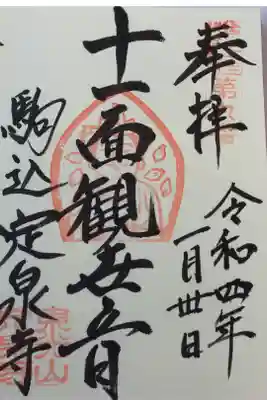 奉拝
令和四年
一月卅日
十一面観世音
駒込定泉寺